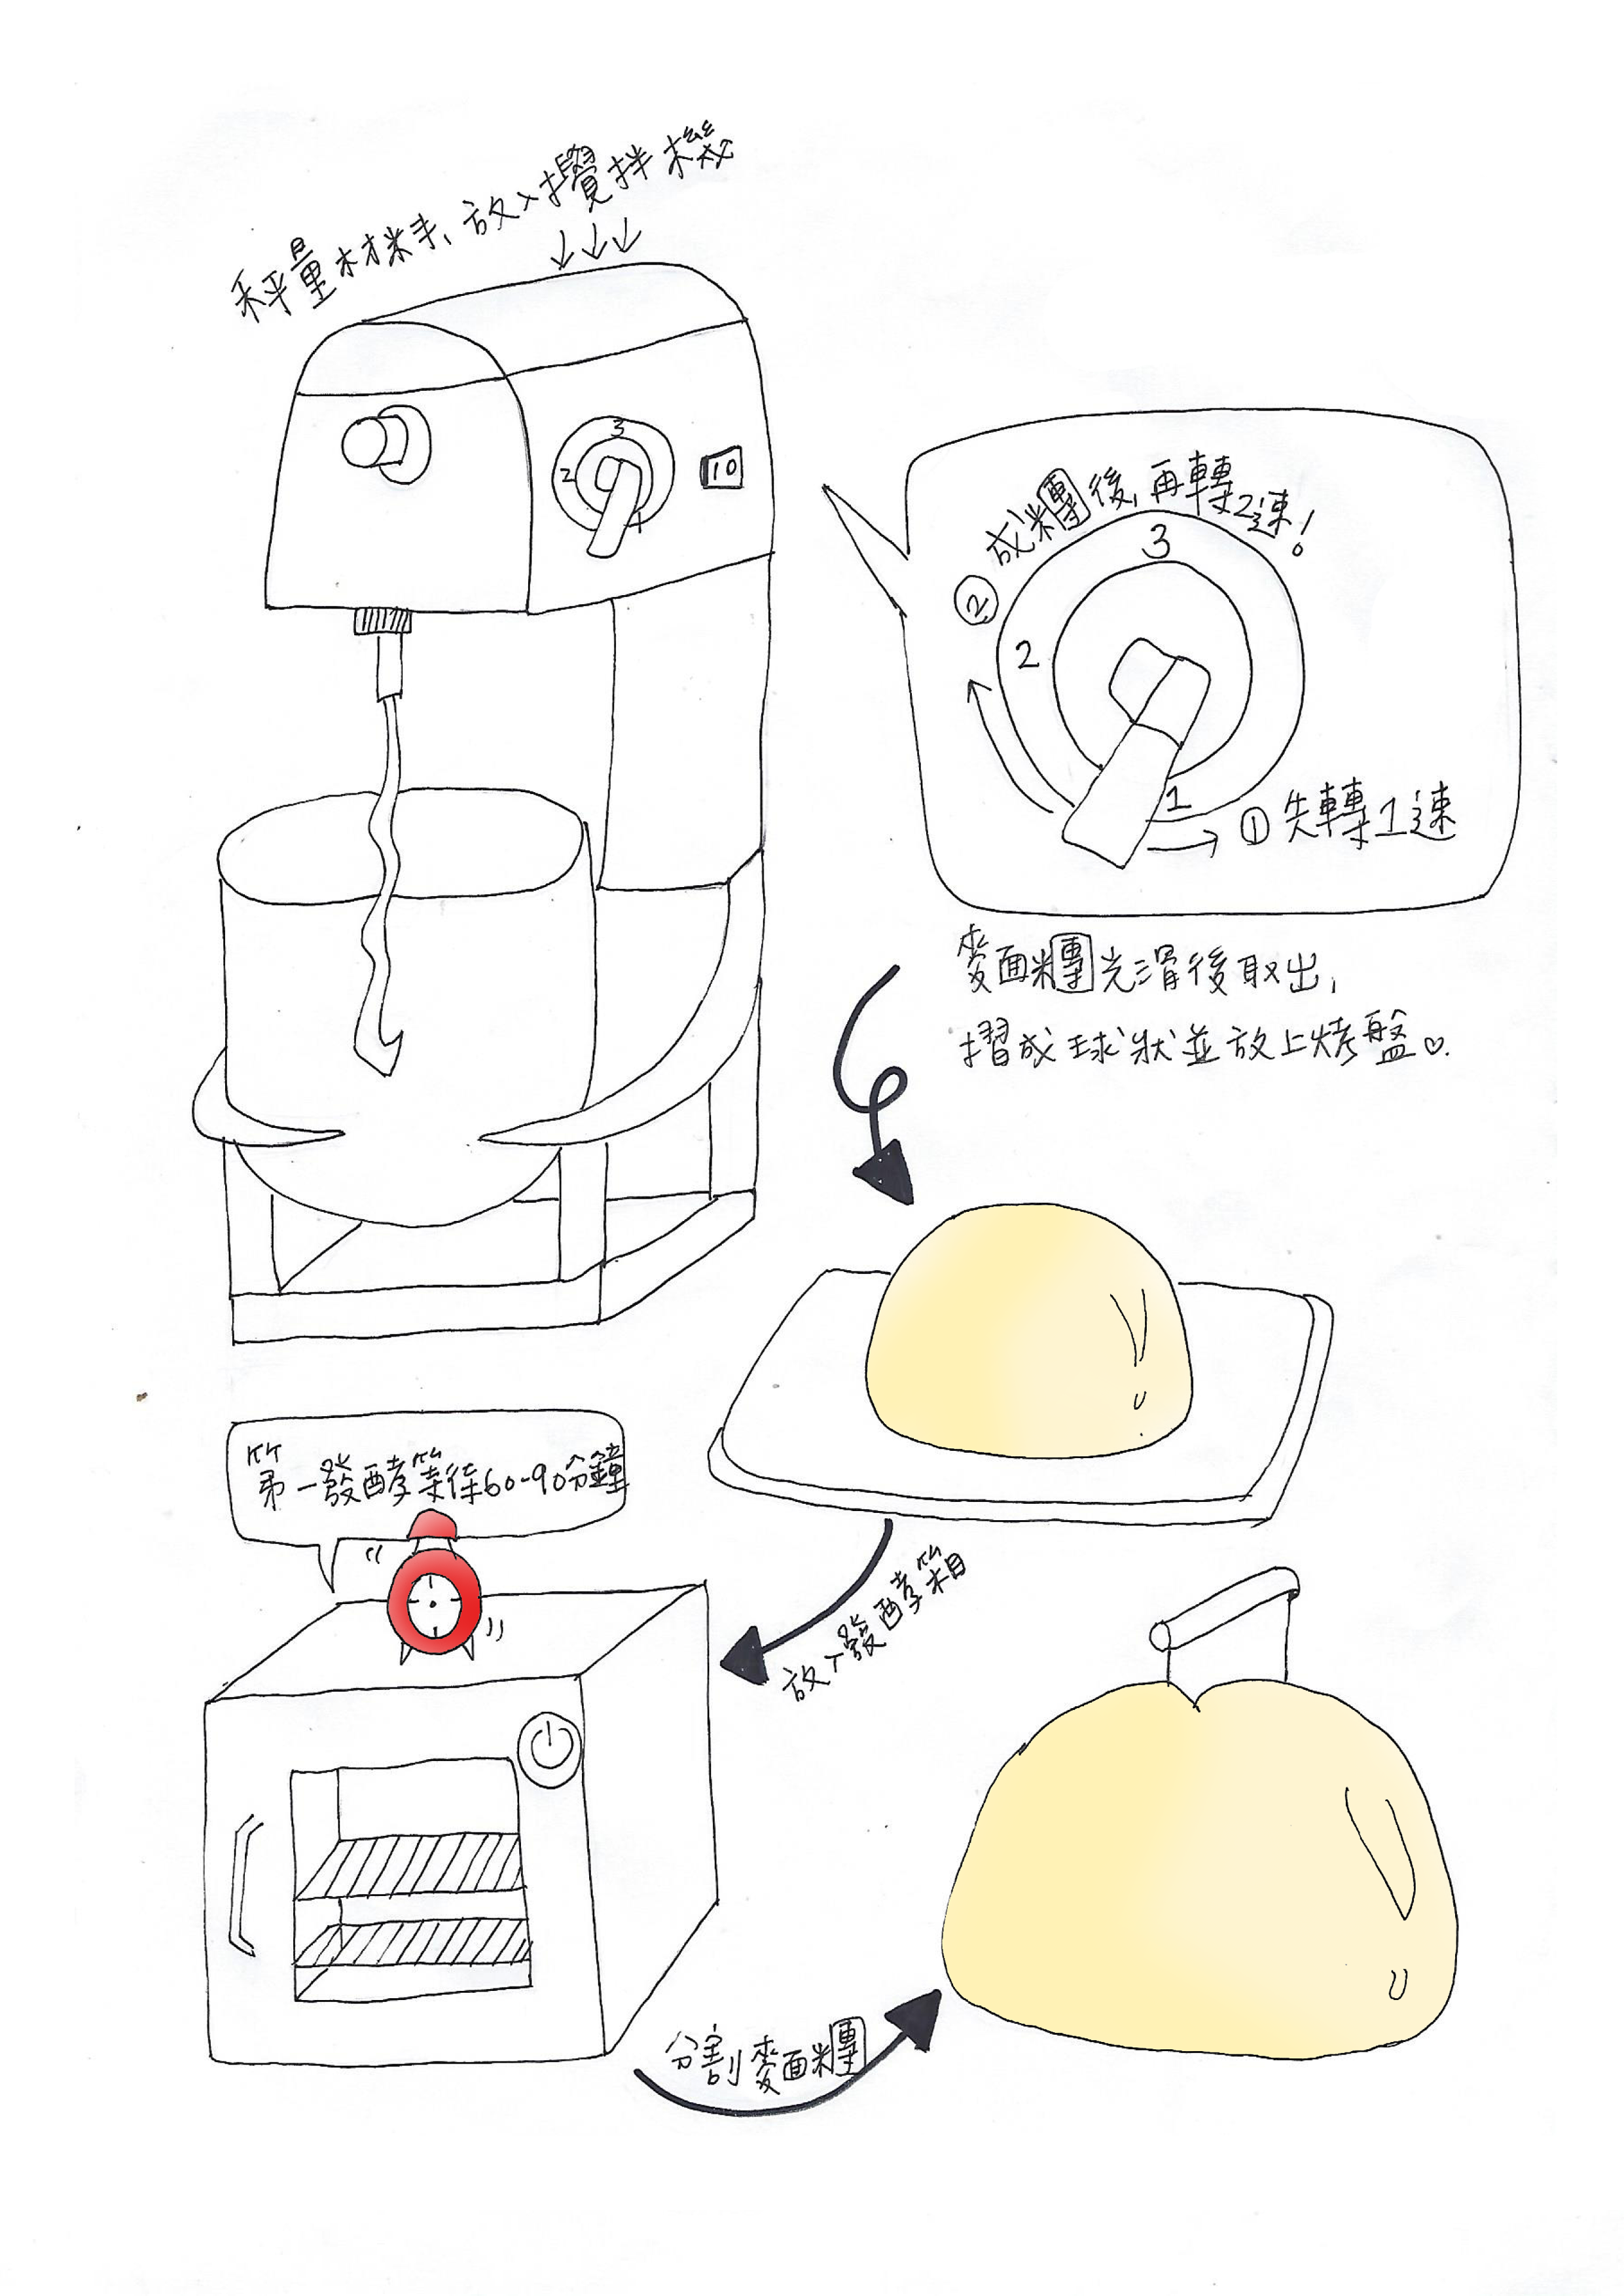 秤量材料、放入攪拌機
3
2
1
10
②成糰後,再轉2速!
3
2
1
①先轉1速
麵糰光滑後取出,
摺成球狀並放上烤盤♡.
第一發酵等待60-90分鐘
放入發酵箱
分割麵糰